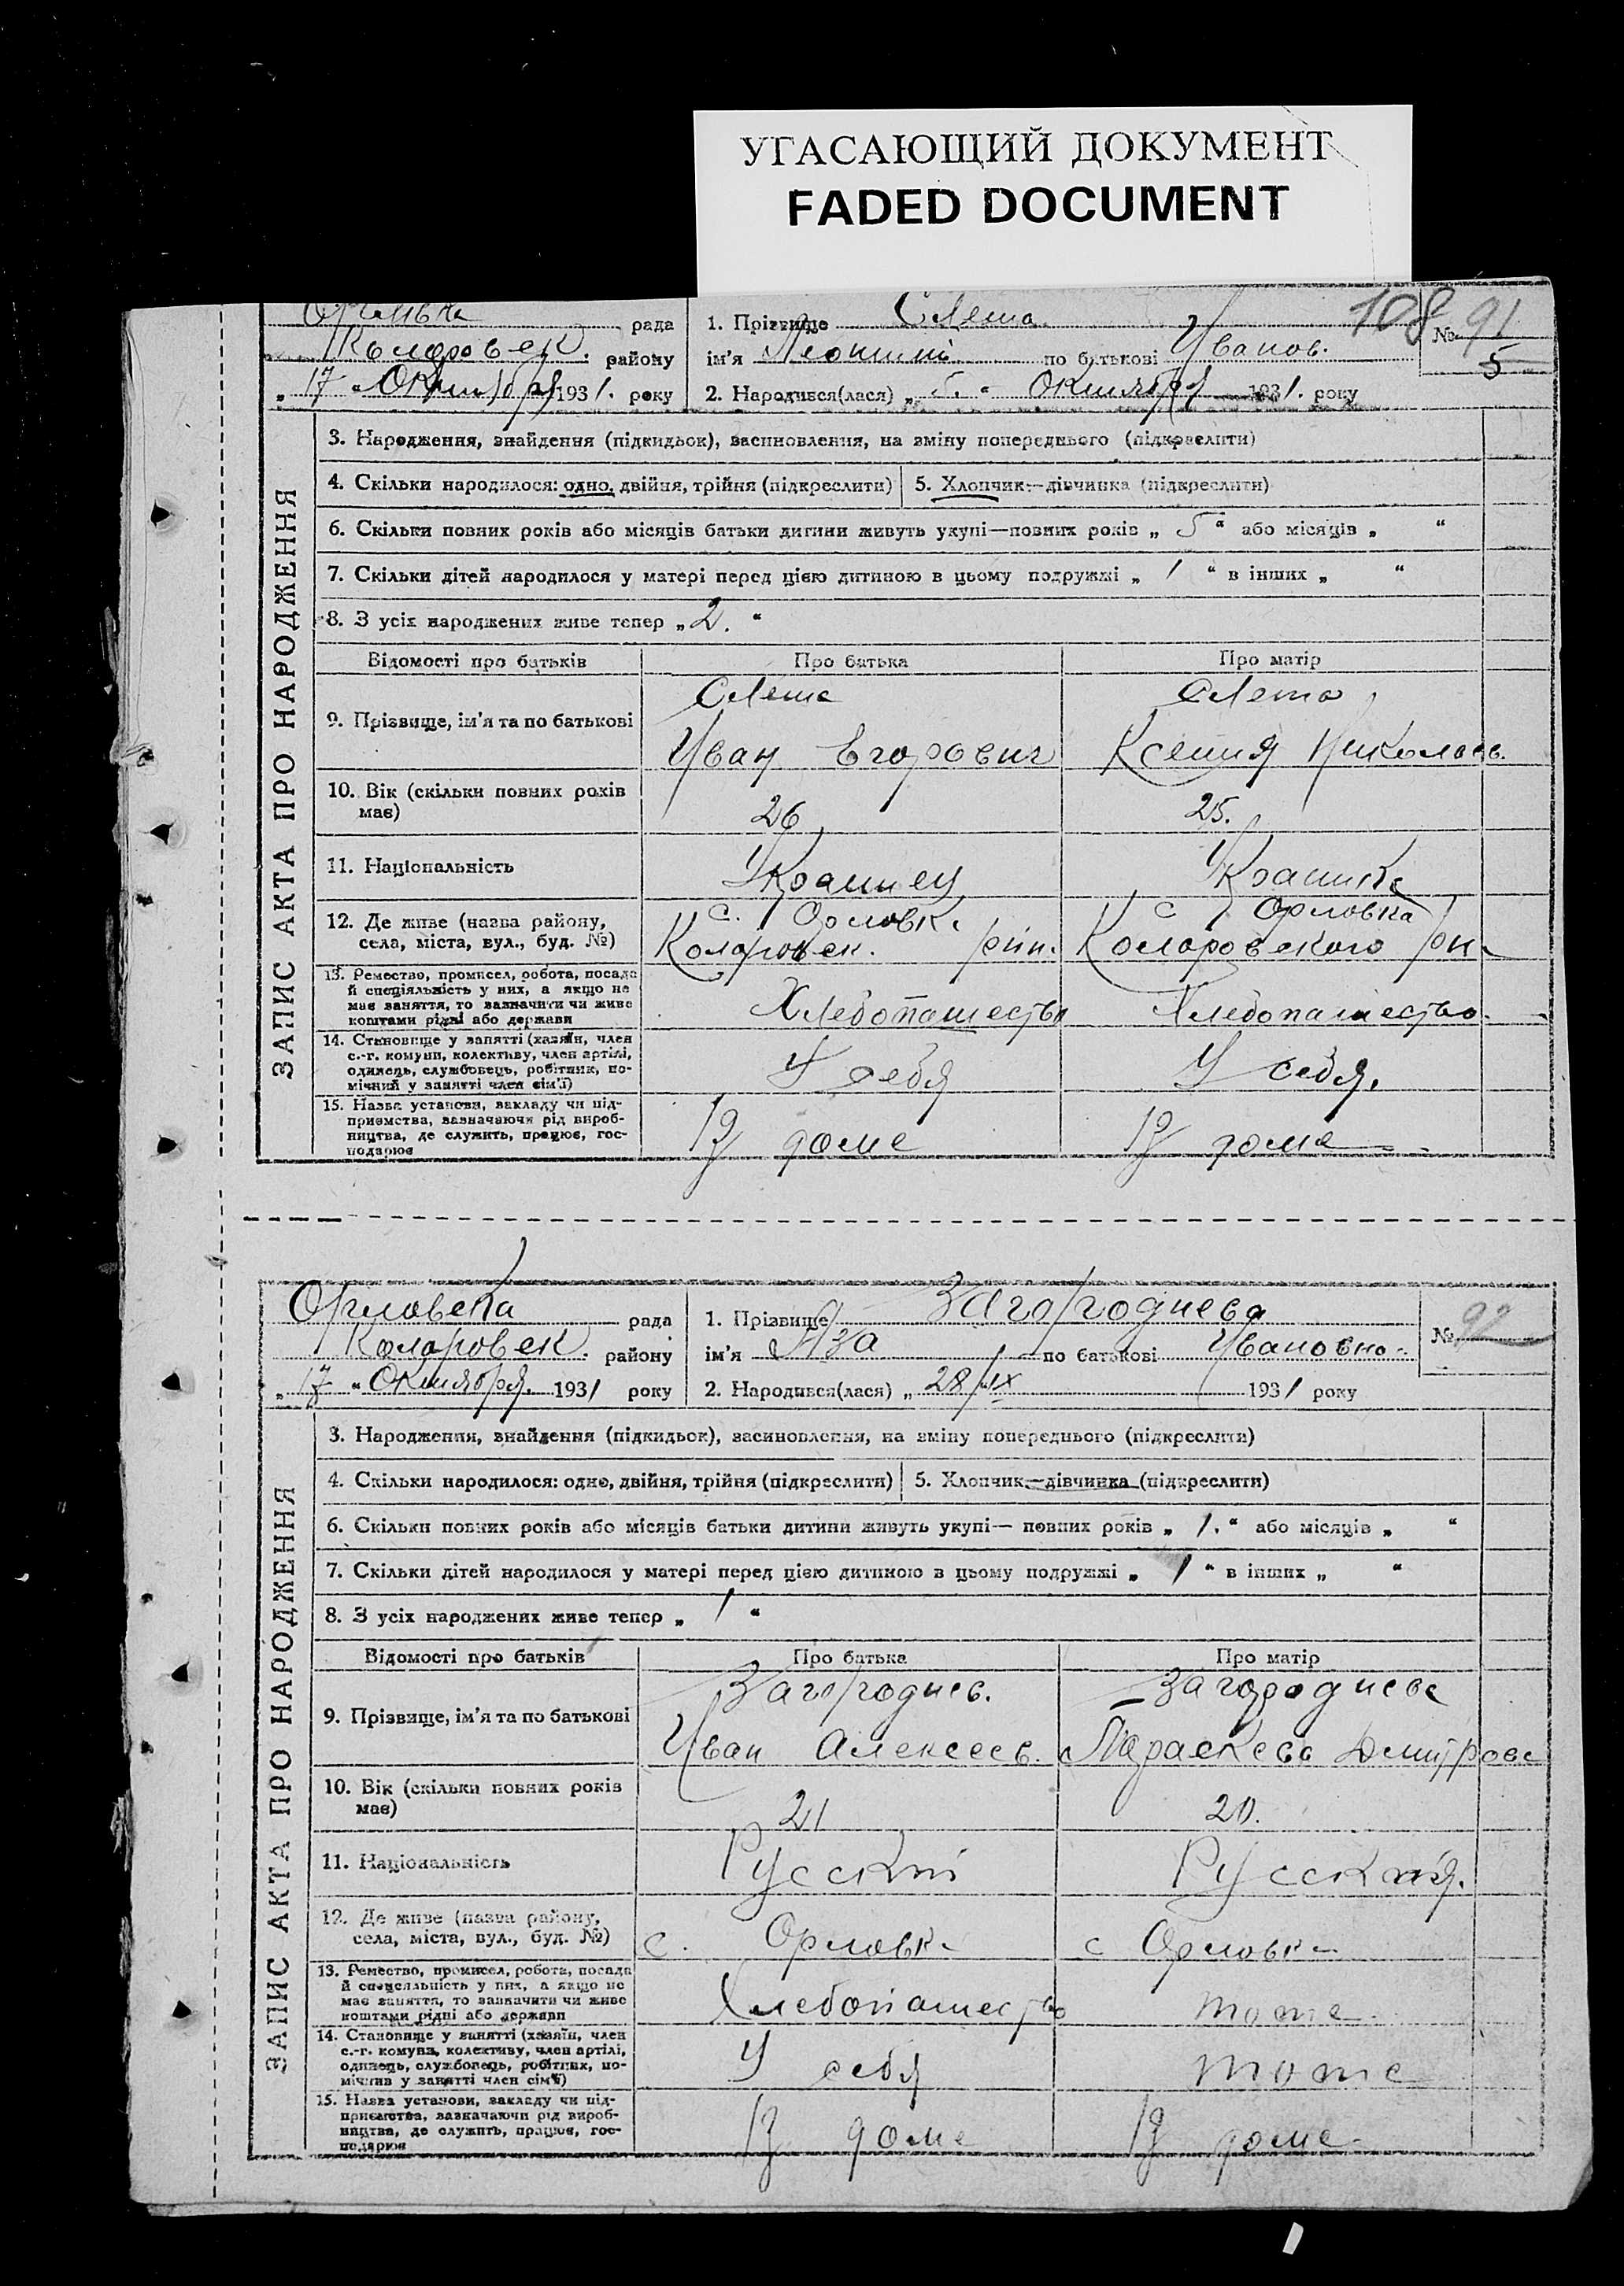 УГАСАЮЩИЙ ДОКУМЕНТ
FADED DOCUMENT
108
рада
районy
„ 17 " Октября 1931. року
1. Прізвище Слета
ім'я по батькові Иванов.
2. Народився(лася) „ 5. " Октября 1931. року
№ 91
5
ЗАПИС АКТА ПРО НАРОДЖЕННЯ
3. Народження, знайдення (підкидьок), засиновлення, на зміну попереднього (підкреслити)
4. Скільки народилося: одно, двійня, трійня (підкреслити)
5. Хлопчик—дівчинка (підкреслити)
6. Скільки повних років або місяців батьки дитини живуть укупі—повних років „ 5 " або місяців „ "
7. Скільки дітей народилося у матері перед цією дитиною в цьому подружжі „ 1 " в інших „ "
8. З усіх народжених живе тепер „ 2. "
Відомості про батьків
Про батька
Про матір
9. Прізвище, ім'я та по батькові
Слета
Иван Егорович
Слета
Ксения Николаев.
10. Вік (скільки повних років
має)
26
25.
11. Національність
Украинец
Украинка
12. Де живе (назва району,
села, міста, вул., буд. №)
с. Орловк.
Коларовск. рйн.
с. Орловка
Коларовского рн.
13. Ремество, промисел, робота, посада
й спеціяльність у них, а якщо не
має заняття, то зазначити чи живе
коштами рідні або держави
Хлебопашество
Хлебопашество.
14. Становище у занятті (хазяїн, член
с.-г. комуни, колективу, член артілі,
одинець, службовець, робітник, по-
мічний у занятті член сім'ї)
У себя
У себя.
15. Назва установи, закладу чи під-
приємства, зазначаючи рід вироб-
ництва, де служить, працює, гос-
подарює
В доме
В доме
Орловска рада
Коларовск. району
„ 17 " Октября. 1931 року
1. Прізвище Загороднева
ім'я Аза по батькові Ивановно.
2. Народився(лася) „ 28/IX 1931 року
№ 92
ЗАПИС АКТА ПРО НАРОДЖЕННЯ
3. Народження, знайдення (підкидьок), засиновлення, на зміну попереднього (підкреслити)
4. Скільки народилося: одно, двійня, трійня (підкреслити)
5. Хлопчик—дівчинка (підкреслити)
6. Скільки повних років або місяців батьки дитини живуть укупі— повних років „ 1. " або місяців „ "
7. Скільки дітей народилося у матері перед цією дитиною в цьому подружжі „ 1 " в інших „ "
8. З усіх народжених живе тепер „ 1 "
Відомості про батьків
Про батька
Про матір
9. Прізвище, ім'я та по батькові
Загороднев.
Иван Алексеев.
Загороднева
Параскева Дмитрова
10. Вік (скільки повних років
має)
21
20.
11. Національність
Русский
Русская.
12. Де живе (назва району,
села, міста, вул., буд. №)
с. Орловка
с Орловка
13. Ремество, промисел, робота, посада
й спеціяльність у них, а якщо не
має заняття, то зазначити чи живе
коштами рідні або держави
Хлебопашество
тоже
14. Становище у занятті (хазяїн, член
с.-г. комуни, колективу, член артілі,
одинець, службовець, робітник, по-
мічник у занятті член сім'ї)
У себя
тоже
15. Назва установи, закладу чи під-
приємства, зазначаючи рід вироб-
ництва, де служить, працює, гос-
подарює
В доме
В доме